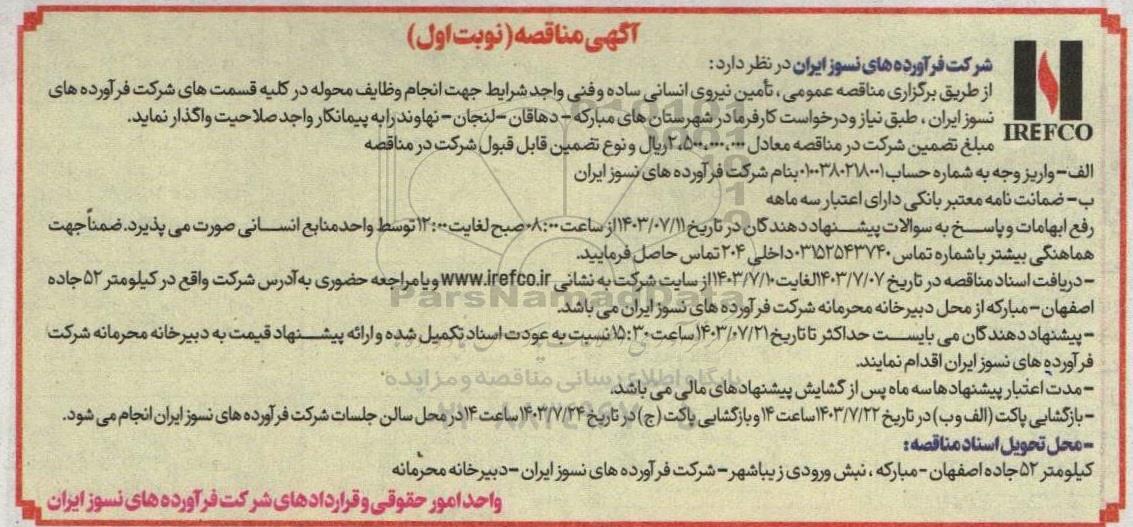 آگهی مناقصه (نوبت اول)
شرکت فرآورده های نسوز ایران در نظر دارد:
از طریق برگزاری مناقصه عمومی ، تأمین نیروی انسانی ساده و فنی واجد شرایط جهت انجام وظایف محوله در کلیه قسمت های شرکت فرآورده های
نسوز ایران ، طبق نیاز و درخواست کارفرما در شهرستان های مبارکه - دهاقان - لنجان - نهاوند را به پیمانکار واجد صلاحیت واگذار نماید.
IREFCO
مبلغ تضمین شرکت در مناقصه معادل ۲،۵۰۰،۰۰۰،۰۰۰ ریال و نوع تضمین قابل قبول شرکت در مناقصه
الف- واریز وجه به شماره حساب ۰۱۰۰۳۸۰۲۱۸۰۰۱ بنام شرکت فرآورده های نسوز ایران
ب- ضمانت نامه معتبر بانکی دارای اعتبار سه ماهه
رفع ابهامات و پاسخ به سوالات پیشنهاد دهندگان در تاریخ ۱۴۰۳/۰۷/۱۱ از ساعت ۰۸:۰۰ صبح لغایت ۱۲:۰۰ توسط واحد منابع انسانی صورت می پذیرد. ضمناً جهت
هماهنگی بیشتر با شماره تماس ۰۳۱۵۲۵۴۳۷۴۰ داخلی ۲۰۴ تماس حاصل فرمایید.
- دریافت اسناد مناقصه در تاریخ ۱۴۰۳/۷/۰۷ لغایت ۱۴۰۳/۷/۱۰ از سایت شرکت به نشانی www.irefco.ir و یا مراجعه حضوری به آدرس شرکت واقع در کیلومتر ۵۲ جاده
اصفهان - مبارکه از محل دبیرخانه محرمانه شرکت فرآورده های نسوز ایران می باشد.
ParsNamadData
- پیشنهاد دهندگان می بایست حداکثر تا تاریخ ۱۴۰۳/۰۷/۲۱ ساعت ۱۵:۳۰ نسبت به عودت اسناد تکمیل شده و ارائه پیشنهاد قیمت به دبیرخانه محرمانه شرکت
فرآورده های نسوز ایران اقدام نمایند.
پایگاه اطلاع رسانی مناقصه و مزایده
- مدت اعتبار پیشنهادها سه ماه پس از گشایش پیشنهادهای مالی می باشد.
- بازگشایی پاکت (الف و ب) در تاریخ ۱۴۰۳/۷/۲۲ ساعت ۱۴ و بازگشایی پاکت (ج) در تاریخ ۱۴۰۳/۷/۲۴ ساعت ۱۴ در محل سالن جلسات شرکت فرآورده های نسوز ایران انجام می شود.
- محل تحویل اسناد مناقصه:
کیلومتر ۵۲ جاده اصفهان - مبارکه ، نبش ورودی زیباشهر - شرکت فرآورده های نسوز ایران - دبیرخانه محرمانه
واحد امور حقوقی و قراردادهای شرکت فرآورده های نسوز ایران